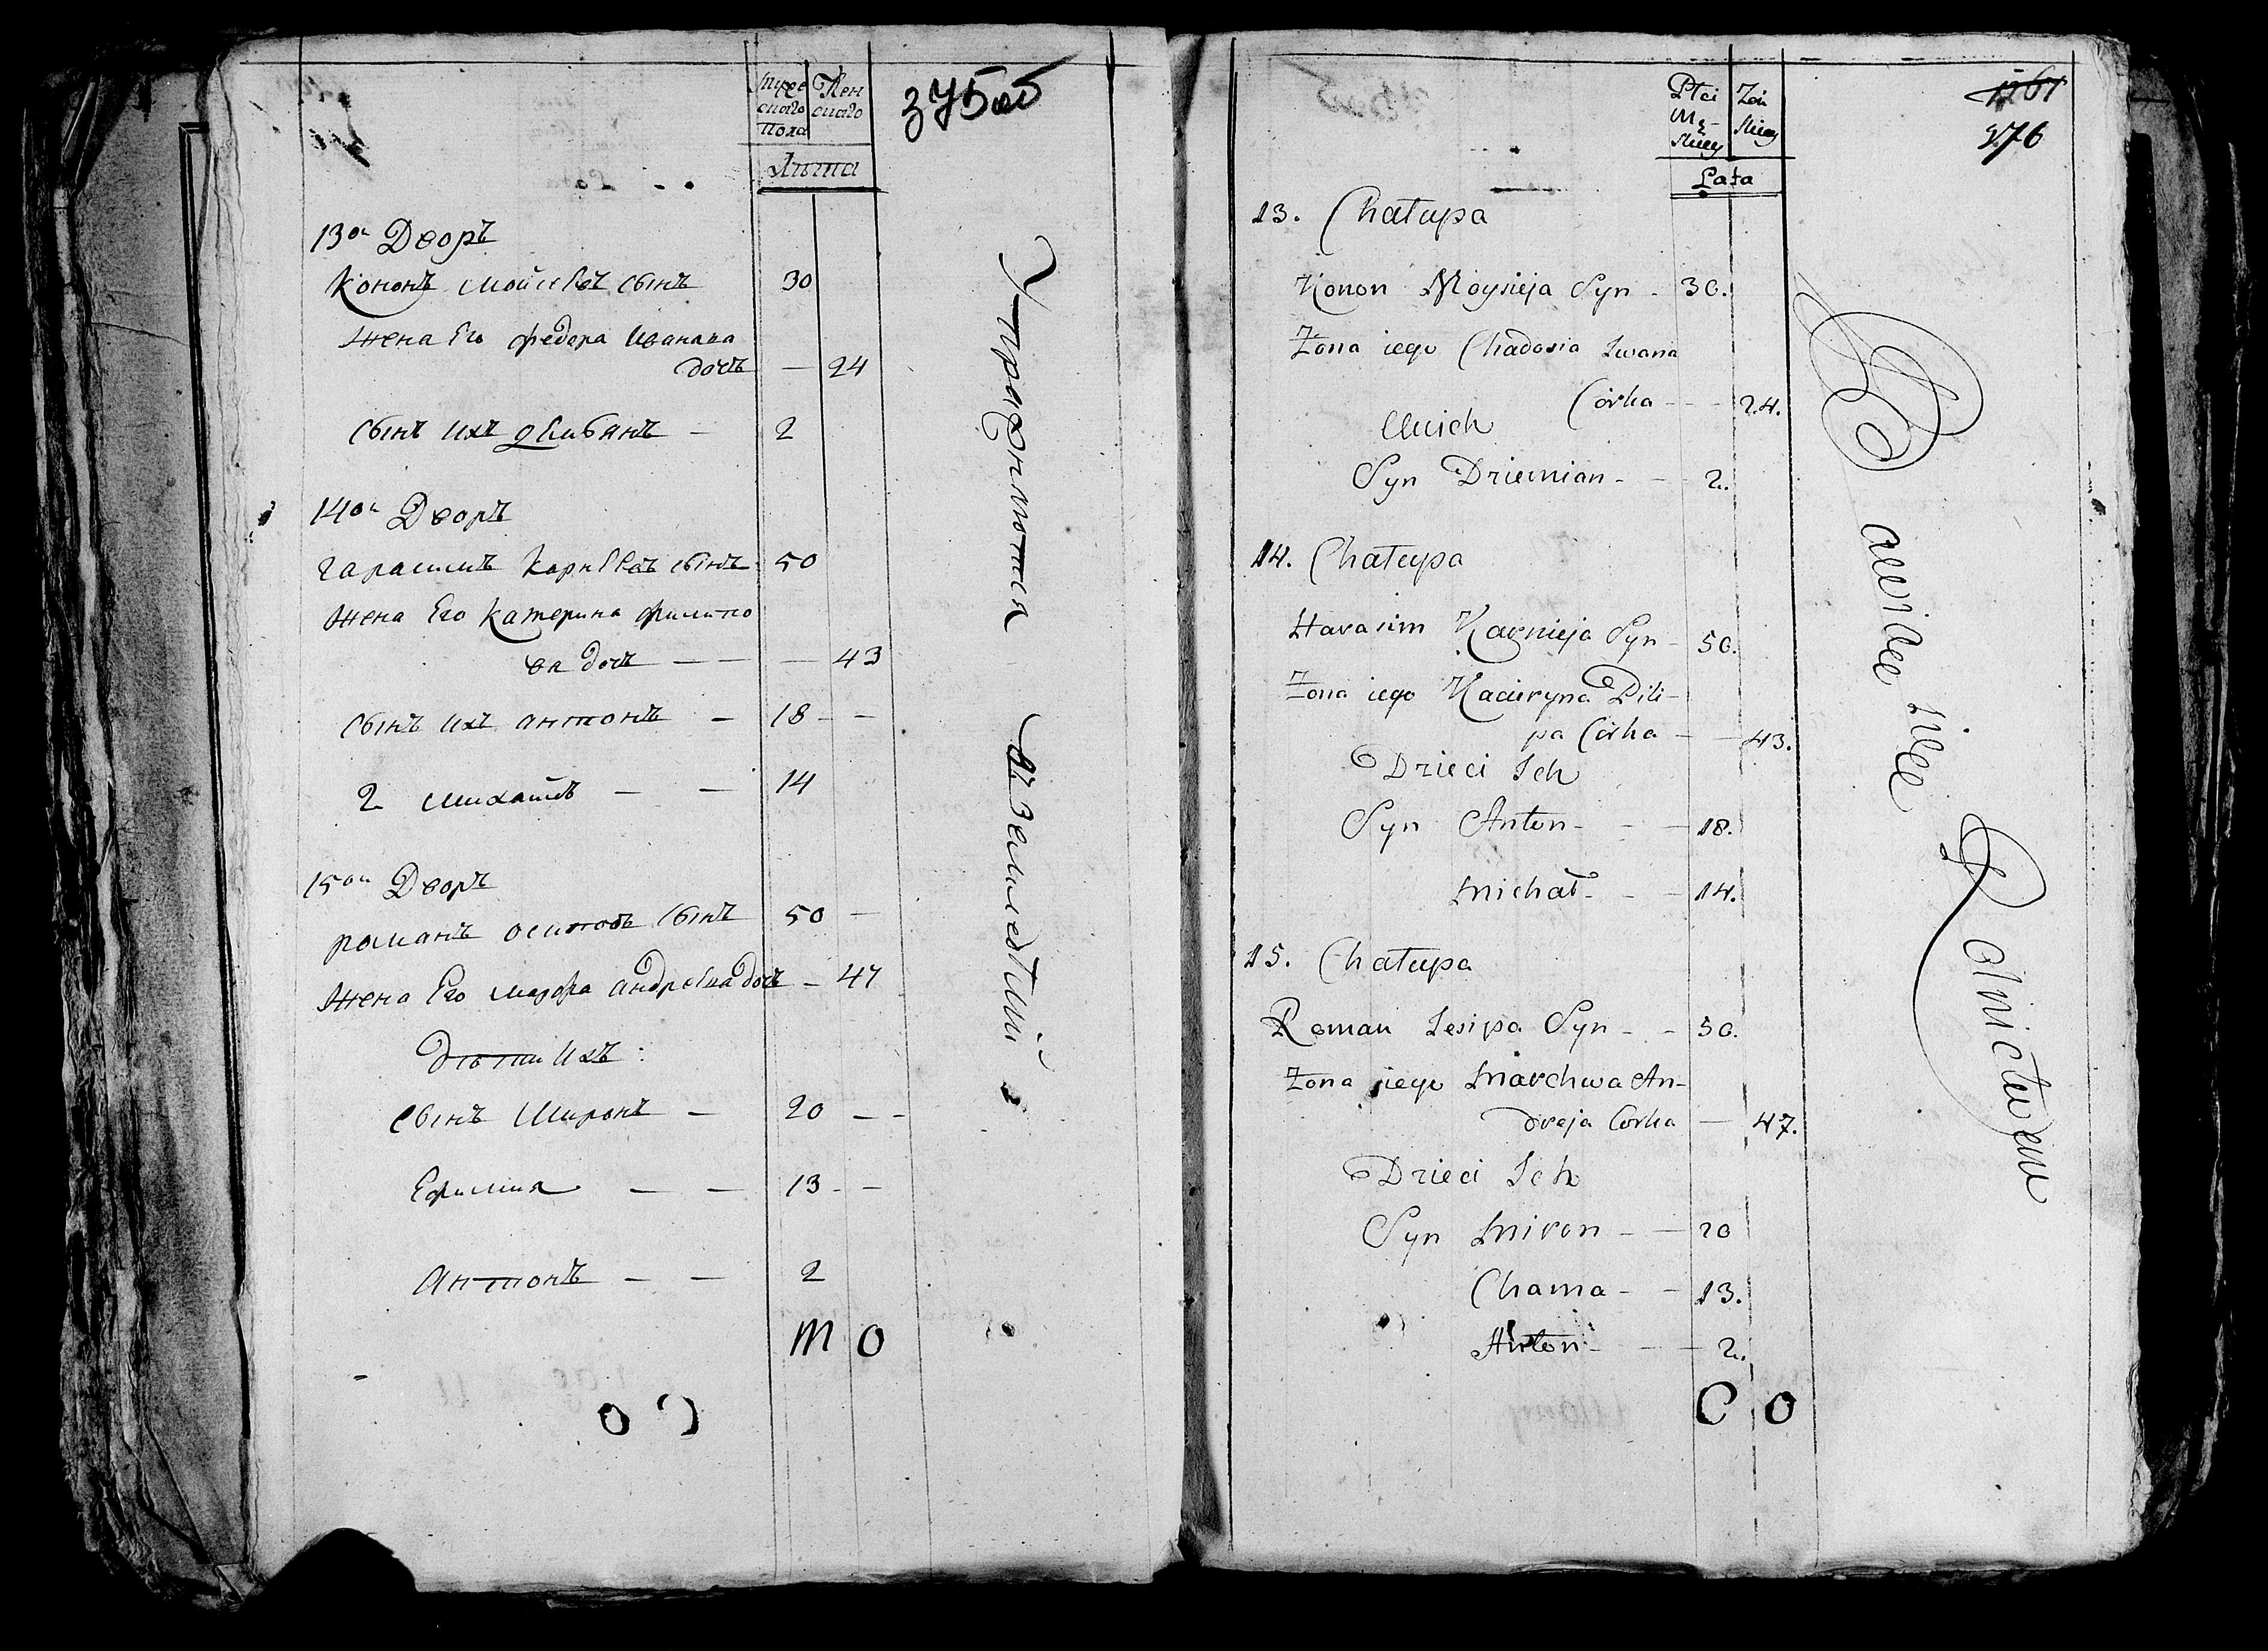 375об
мужеского пола
женского
Лѣта
13ои Дворъ
Кононъ Мойсеевъ сынъ 30
Жена Его Федора Иванава
дочь — 24
сынъ ихъ — 2
14ои Дворъ
Гарасимъ Карнеевъ сынъ 50
Жена Его Катерина Филипо
ва дочь — — — 43
сынъ ихъ антонъ — 18 - -
2 михайла — — 14
15ои Дворъ
романъ осиповъ сынъ 50 —
Жена Его марфа андреева дочь — 47
дѣти ихъ:
сынъ Миронъ — 20 — -
Ефимия — — 13 - -
Антонъ — — 2
m 0
Упражняются в земледелии
1761
376
Płci Męskiey
Żeńskiey
Lata
13. Chałupa
Konon Moysieja Syn - 30.
Żona iego Chadosia Iwana
Córka - - - 24.
U nich
Syn Dziemian - - 2.
14. Chałupa
Harasim Karnieja Syn - 50.
Żona iego Kacieryna Pili-
pa Córka - - 43.
Dzieci Ich
Syn Anton - - - 18.
Michał - - - 14.
15. Chałupa
Roman Iesipa Syn - - 50.
Żona iego Marchwa An-
dreja Corka — 47.
Dzieci Ich
Syn Miron - - 20
Chama - - 13.
Anton - - - 2.
C O
Bawiące się Rolnictwem